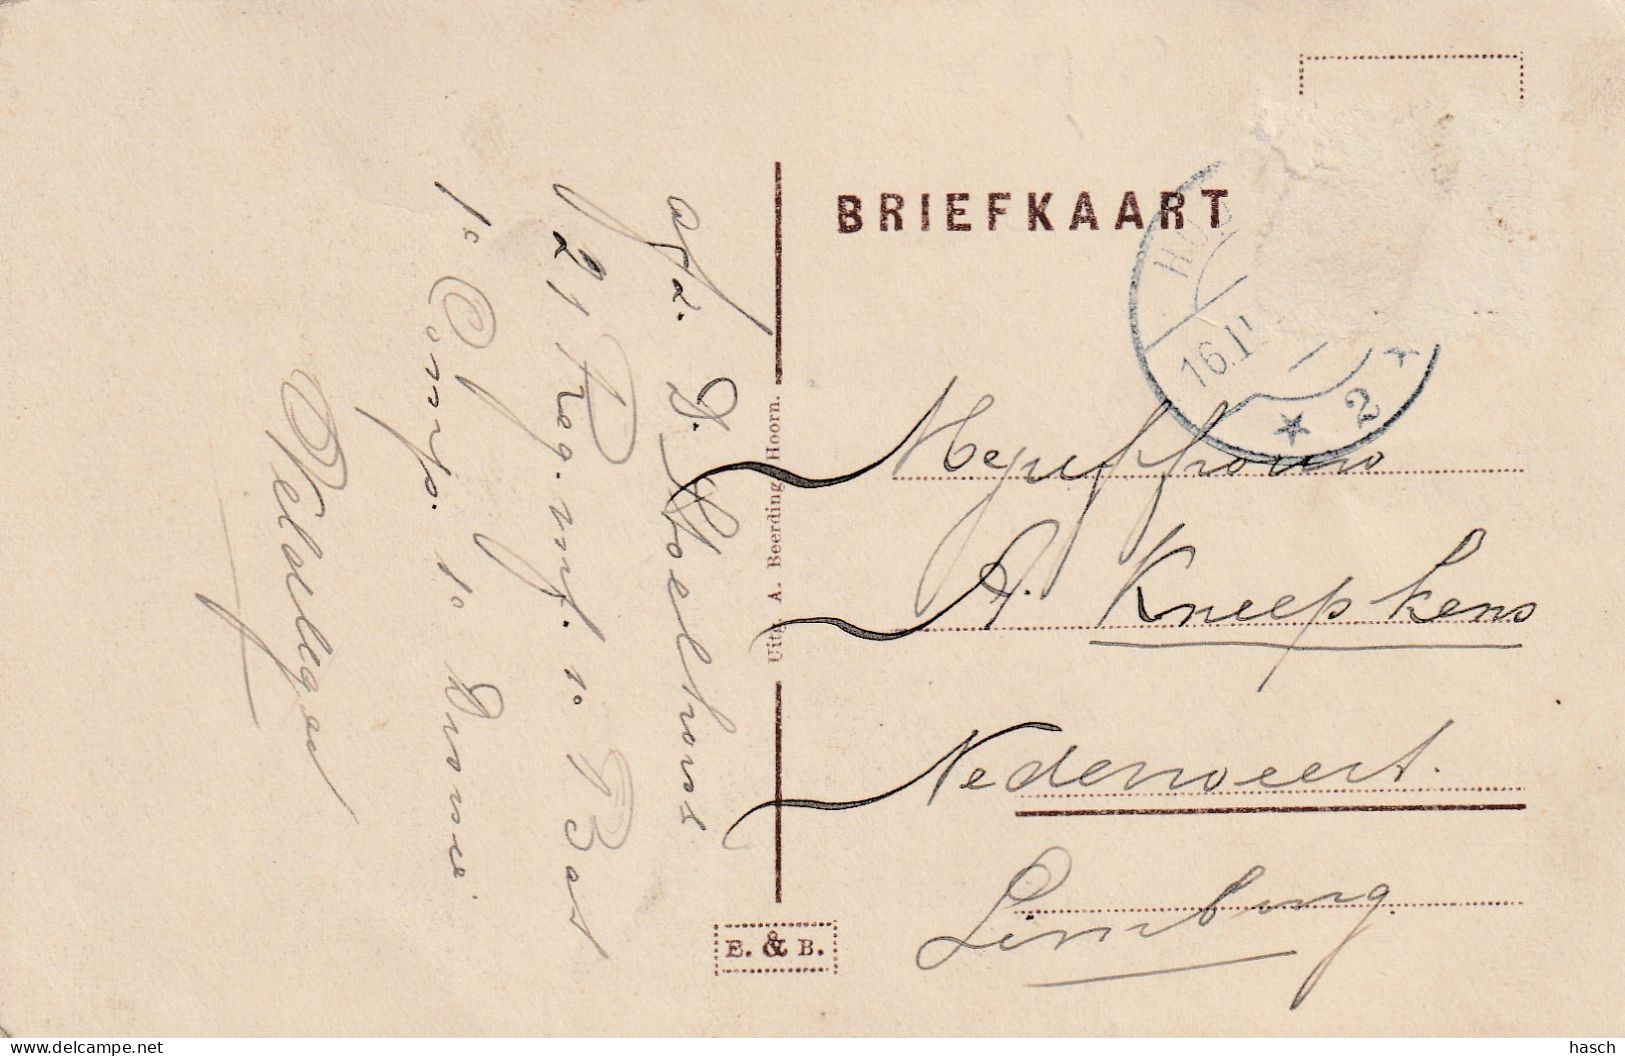 BRIEFKAART
16.1
2
Mejuffrouw
A. Kneepkens
Nederweert.
Limburg.
afz. D.
21 Reg. inf. 1e Bat
1e Comp. 1e Divisie
Veldleger
Uitg. A. Beerding, Hoorn.
E. & B.
www.delcampe.net
hasch